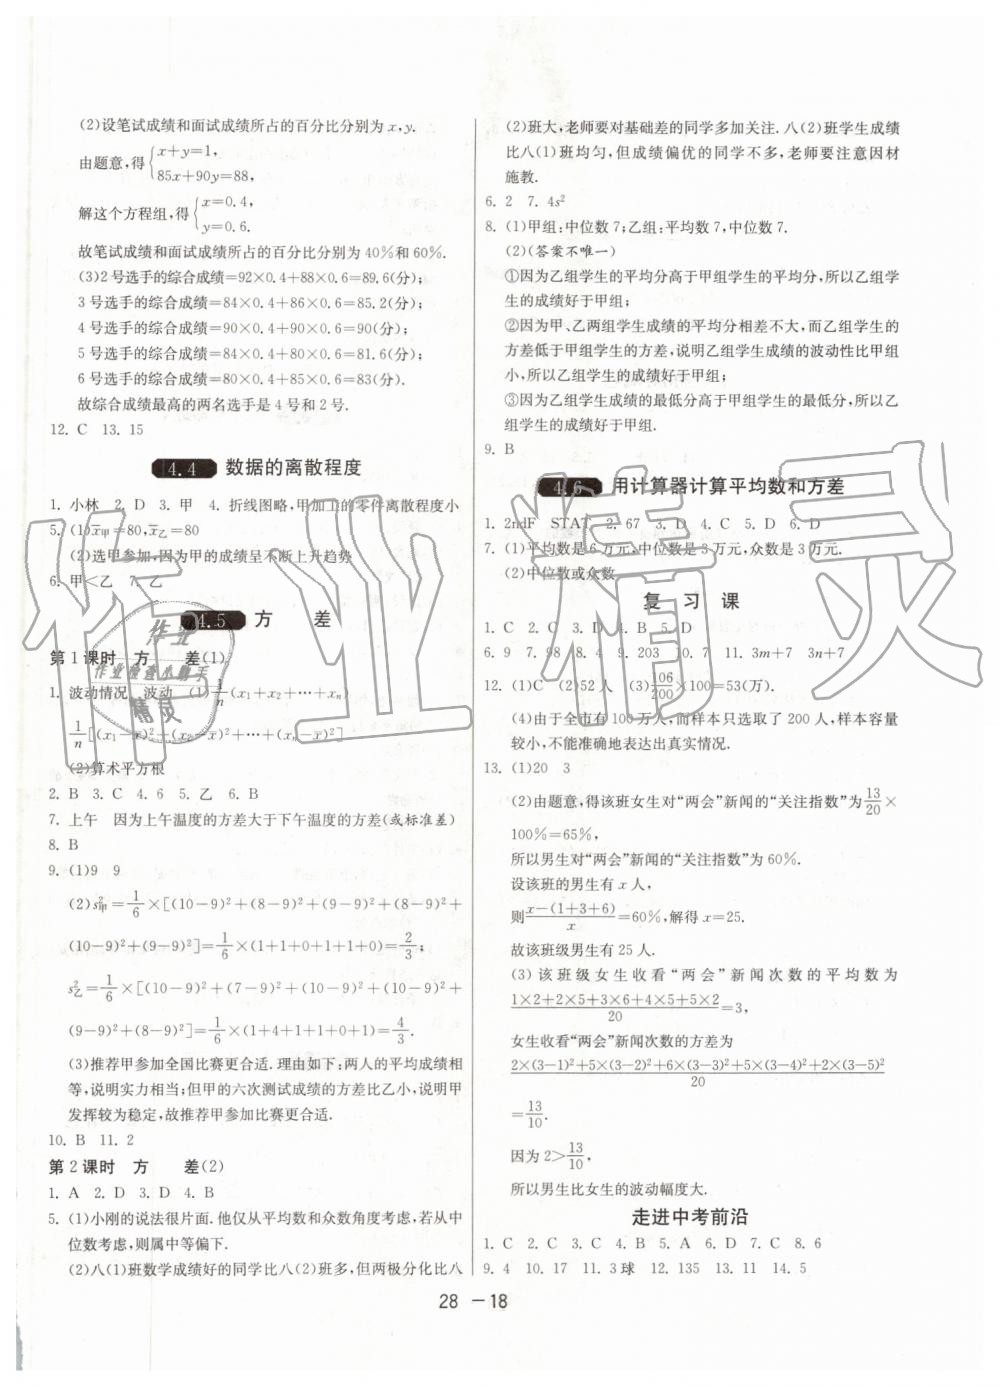 (2)设笔试成绩和面试成绩所占的百分比分别为x,y.
由题意,得{x+y=1,
85x+90y=88,
解这个方程组,得{x=0.4,
y=0.6.
故笔试成绩和面试成绩所占的百分比分别为40%和60%.
(3)2号选手的综合成绩=92×0.4+88×0.6=89.6(分);
3号选手的综合成绩=84×0.4+86×0.6=85.2(分);
4号选手的综合成绩=90×0.4+90×0.6=90(分);
5号选手的综合成绩=84×0.4+80×0.6=81.6(分);
6号选手的综合成绩=80×0.4+85×0.6=83(分).
故综合成绩最高的两名选手是4号和2号.
12. C 13. 15
4.4 数据的离散程度
1. 小林 2. D 3. 甲 4. 折线图略,甲加工的零件离散程度小
5. (1)x̄甲=80,x̄乙=80
(2)选甲参加,因为甲的成绩呈不断上升趋势
6. 甲<乙 7. 乙
4.5 方 差
第1课时 方 差(1)
1. 波动情况 波动 (1)1/n(x₁+x₂+…+xₙ)
1/n[(x₁-x̄)²+(x₂-x̄)²+…+(xₙ-x̄)²]
(2)算术平方根
2. B 3. C 4. 6 5. 乙 6. B
7. 上午 因为上午温度的方差大于下午温度的方差(或标准差)
8. B
9. (1)9 9
(2)s²甲=1/6×[(10-9)²+(8-9)²+(9-9)²+(8-9)²+
(10-9)²+(9-9)²]=1/6×(1+1+0+1+1+0)=2/3;
s²乙=1/6×[(10-9)²+(7-9)²+(10-9)²+(10-9)²+
(9-9)²+(8-9)²]=1/6×(1+4+1+1+0+1)=4/3.
(3)推荐甲参加全国比赛更合适.理由如下:两人的平均成绩相
等,说明实力相当;但甲的六次测试成绩的方差比乙小,说明甲
发挥较为稳定,故推荐甲参加比赛更合适.
10. B 11. 2
第2课时 方 差(2)
1. A 2. D 3. D 4. B
5. (1)小刚的说法很片面.他仅从平均数和众数角度考虑,若从中
位数考虑,则属中等偏下.
(2)八(1)班数学成绩好的同学比八(2)班多,但两极分化比八
(2)班大,老师要对基础差的同学多加关注.八(2)班学生成绩
比八(1)班均匀,但成绩偏优的同学不多,老师要注意因材
施教.
6. 2 7. 4s²
8. (1)甲组:中位数7;乙组:平均数7,中位数7.
(2)(答案不唯一)
①因为乙组学生的平均分高于甲组学生的平均分,所以乙组学
生的成绩好于甲组;
②因为甲、乙两组学生成绩的平均分相差不大,而乙组学生的
方差低于甲组学生的方差,说明乙组学生成绩的波动性比甲组
小,所以乙组学生的成绩好于甲组;
③因为乙组学生成绩的最低分高于甲组学生的最低分,所以乙
组学生的成绩好于甲组.
9. B
4.6 用计算器计算平均数和方差
1. 2ndF STAT 2. 67 3. D 4. C 5. D 6. D
7. (1)平均数是6万元,中位数是3万元,众数是3万元.
(2)中位数或众数
复 习 课
1. C 2. C 3. D 4. B 5. D
6. 9 7. 98 8. 4 9. 203 10. 7 11. 3m+7 3n+7
12. (1)C (2)52人 (3)106/200×100=53(万).
(4)由于全市有100万人,而样本只选取了200人,样本容量
较小,不能准确地表达出真实情况.
13. (1)20 3
(2)由题意,得该班女生对“两会”新闻的“关注指数”为13/20×
100%=65%,
所以男生对“两会”新闻的“关注指数”为60%.
设该班的男生有x人,
则(x-(1+3+6))/x=60%,解得x=25.
故该班级男生有25人.
(3)该班级女生收看“两会”新闻次数的平均数为
(1×2+2×5+3×6+4×5+5×2)/20=3,
女生收看“两会”新闻次数的方差为
(2×(3-1)²+5×(3-2)²+6×(3-3)²+5×(3-4)²+2×(3-5)²)/20
=13/10.
因为2>13/10,
所以男生比女生的波动幅度大.
走进中考前沿
1. C 2. C 3. C 4. B 5. A 6. D 7. C 8. 6
9. 4 10. 17 11. 3球 12. 135 13. 11 14. 5
28 -18
作业精灵
作业
作业检查小助手
精灵